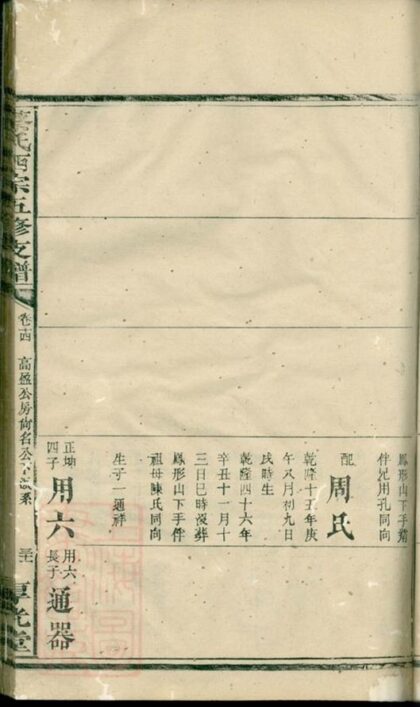 鳳形山下手
伴兄用孔同向
配
周氏
乾隆十五年庚
午八月初九日
戌時生
乾隆四十六年
辛丑十一月十
三日巳時歿葬
鳳形山下手伴
祖母陳氏同向
生子一通祥
正坤
四子
用六
用六
長子
通器
氏西宗五修支譜
卷十四
高盛公房向名公下派系
享光堂